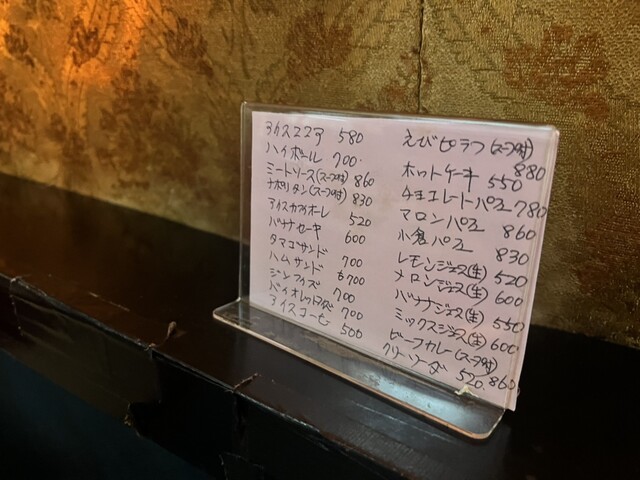 アイスココア 580
ハイボール 700
ミートソース(スープ付) 860
ナポリタン(スープ付) 830
アイスカフィオーレ 520
バナナセーキ 600
タマゴサンド 700
ハムサンド 700
ジンフィズ 700
バイオレットフィズ 700
アイスコーヒ 500
えびピラフ(スープ付) 880
ホットケーキ 550
チョコレートパフェ 780
マロンパフェ 860
小倉パフェ 830
レモンジュース(生) 520
メロンジュース(生) 600
バナナジュース(生) 550
ミックスジュース(生) 600
ビーフカレー(スープ付) 860
クリーソーダ 520